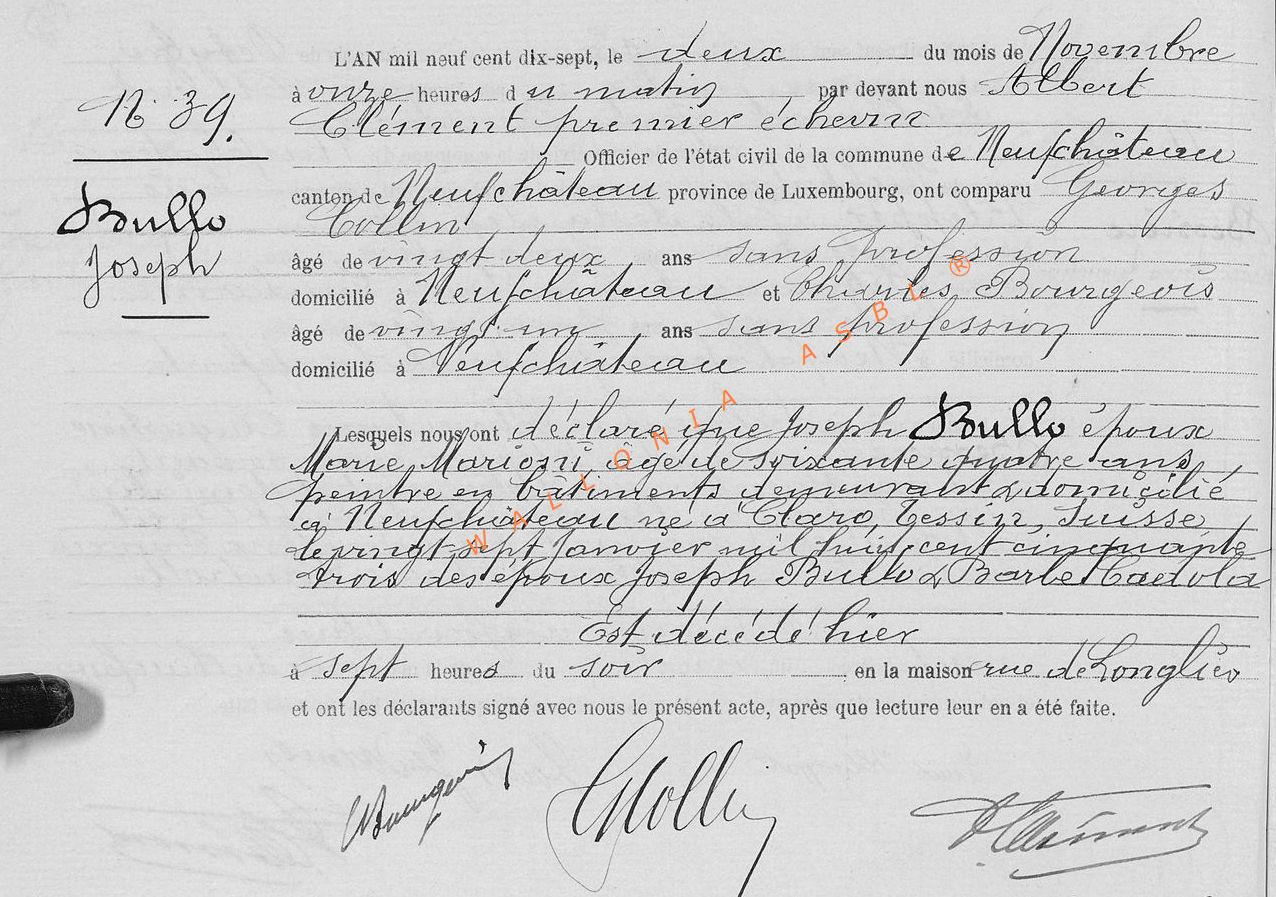 N. 39.
Bullo
Joseph
L'AN mil neuf cent dix-sept, le deux du mois de Novembre
à onze heures du matin, par devant nous Albert
Clément premier échevin
Officier de l'état civil de la commune de Neufchâteau
canton de Neufchâteau province de Luxembourg, ont comparu Georges
Collin
âgé de vingt deux ans sans profession
domicilié à Neufchâteau et Charles Bourgeois
âgé de vingt un ans sans profession
domicilié à Neufchâteau
Lesquels nous ont déclaré que Joseph Bullo époux
Marie Marioni, âgé de soixante quatre ans,
peintre en bâtiments demeurant & domicilié
à Neufchâteau né à Claro, Tessin, Suisse,
le vingt sept Janvier mil huit cent cinquante
trois des époux Joseph Bullo & Barbe Cadola
Est décédé hier
à sept heures du soir en la maison rue de Longlier
et ont les déclarants signé avec nous le présent acte, après que lecture leur en a été faite.
CBourgeois
GCollin
AClément
WALLONIA ASBL ®